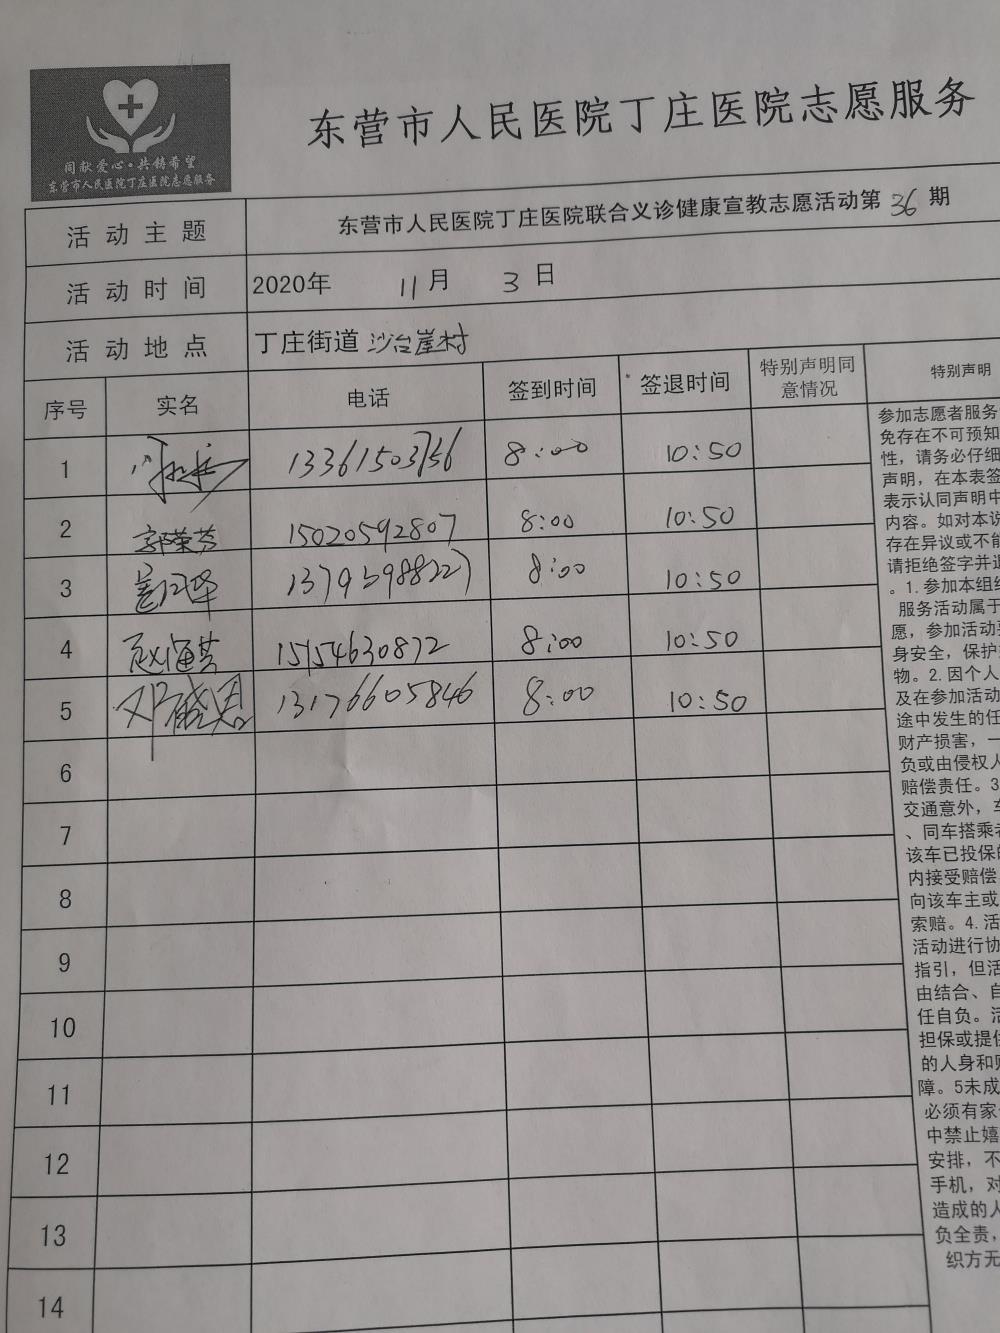 同献爱心·共铸希望
东营市人民医院丁庄医院志愿服务
东营市人民医院丁庄医院志愿服务
活动主题 东营市人民医院丁庄医院联合义诊健康宣教志愿活动第36期
活动时间 2020年 11月 3日
活动地点 丁庄街道沙台崖村
序号 实名 电话 签到时间 签退时间 特别声明同意情况 特别声明
1 8:00 10:50
2 郭荣芳 15020592807 8:00 10:50
3 8:00 10:50
4 赵海英 15154630872 8:00 10:50
5 邓盛恩 13176605846 8:00 10:50
6
7
8
9
10
11
12
13
14
参加志愿者服务
免存在不可预知
性，请务必仔细
声明，在本表签
表示认同声明中
内容。如对本说
存在异议或不能
请拒绝签字并退
。1.参加本组织
服务活动属于
愿，参加活动
身安全，保护
物。2.因个人
及在参加活动
途中发生的任
财产损害，一
负或由侵权人
赔偿责任。3
交通意外，车
、同车搭乘者
该车已投保的
内接受赔偿
向该车主或
索赔。4.活
活动进行协
指引，但活
由结合、自
任自负。活
担保或提供
的人身和财
障。5未成
必须有家
中禁止嬉
安排，不
手机，对
造成的人
负全责，
织方无